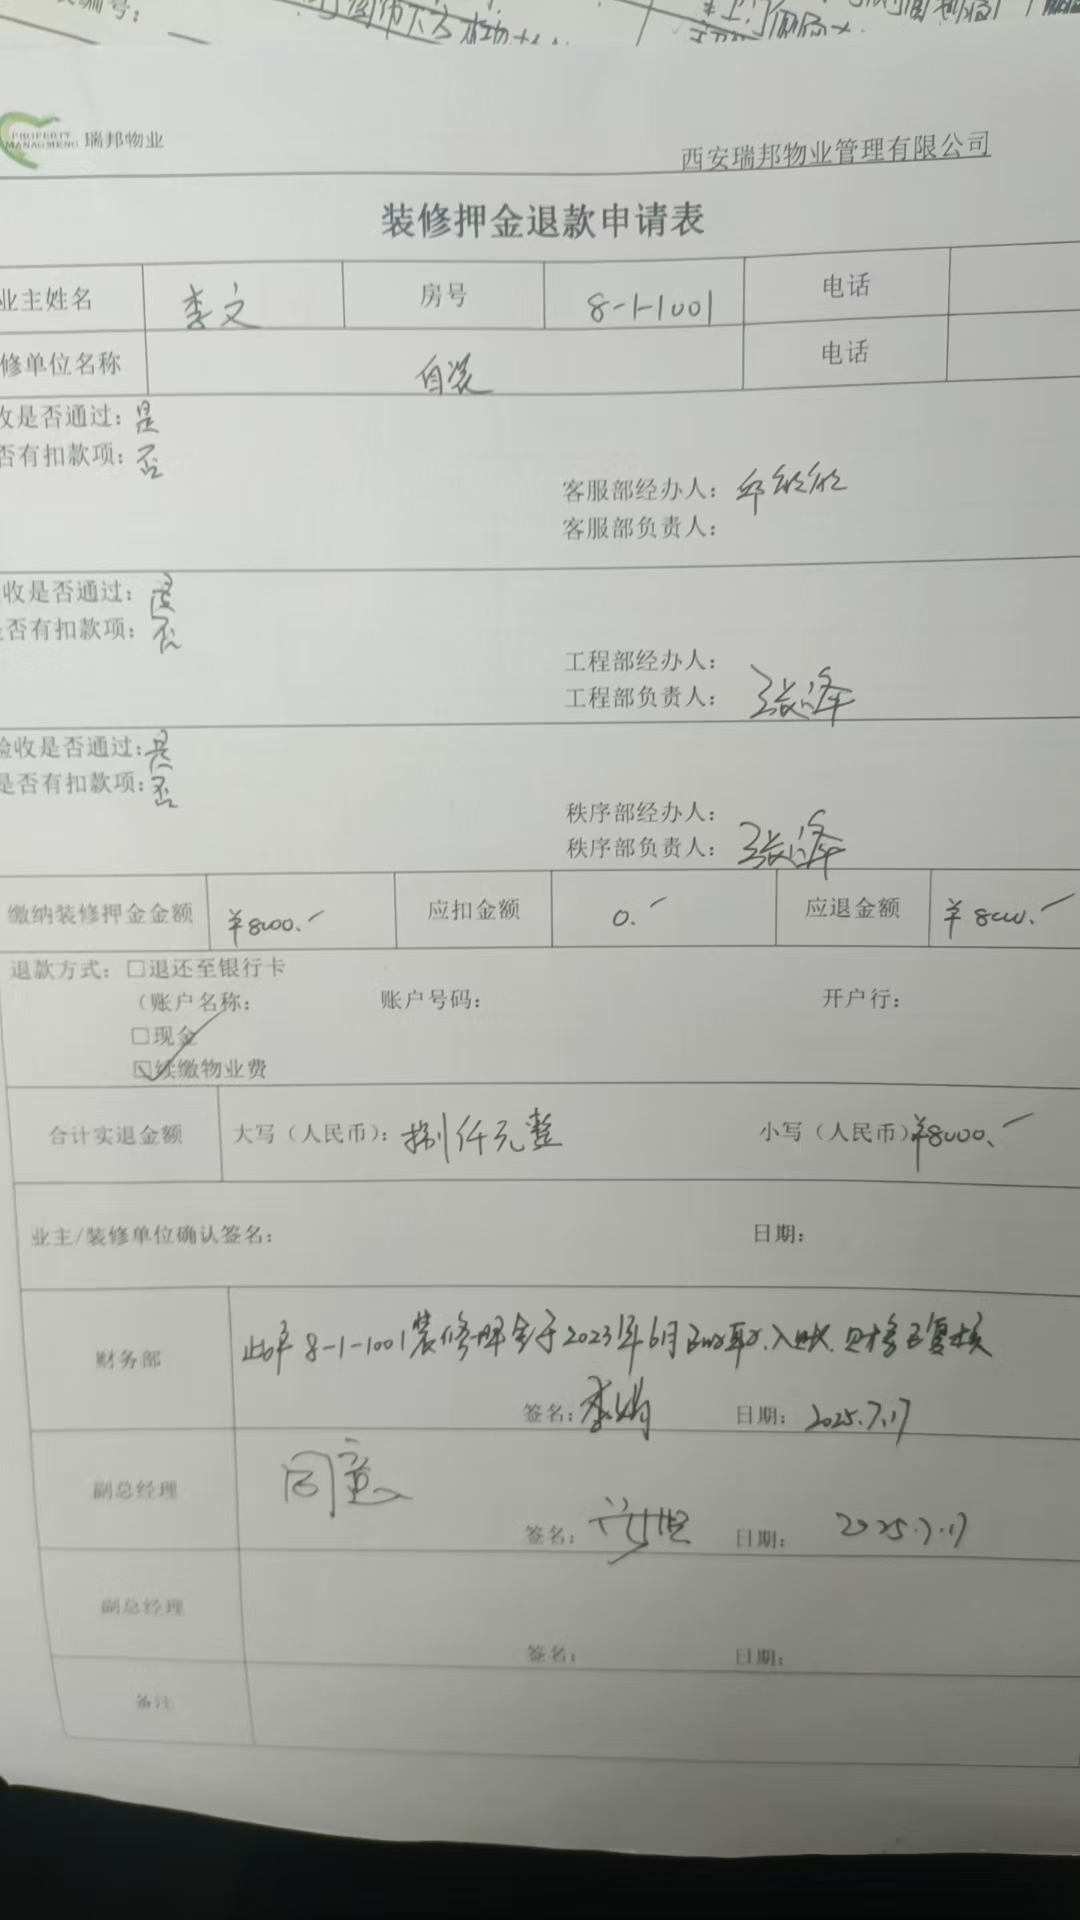 编号:
PROPERTY
MANAGMENG 瑞邦物业
西安瑞邦物业管理有限公司
装修押金退款申请表
业主姓名 李文 房号 8-1-1001 电话
修单位名称 自装 电话
收是否通过: 是
否有扣款项: 否
客服部经办人: 邱欣欣
客服部负责人:
收是否通过: 是
是否有扣款项: 否
工程部经办人:
工程部负责人: 张泽
验收是否通过: 是
是否有扣款项: 否
秩序部经办人:
秩序部负责人: 张泽
缴纳装修押金金额 ¥8000. 应扣金额 0. 应退金额 ¥8000.
退款方式: □退还至银行卡
(账户名称: 账户号码: 开户行:
□现金
☑续缴物业费
合计实退金额 大写(人民币): 捌仟元整 小写(人民币) ¥8000.
业主/装修单位确认签名: 日期:
财务部 此户8-1-1001装修押金于2023年6月已收取.入账.财务已复核
签名: 李娟 日期: 2025.7.17
副总经理 同意
签名: 日期: 2025.7.17
副总经理
签名: 日期:
备注